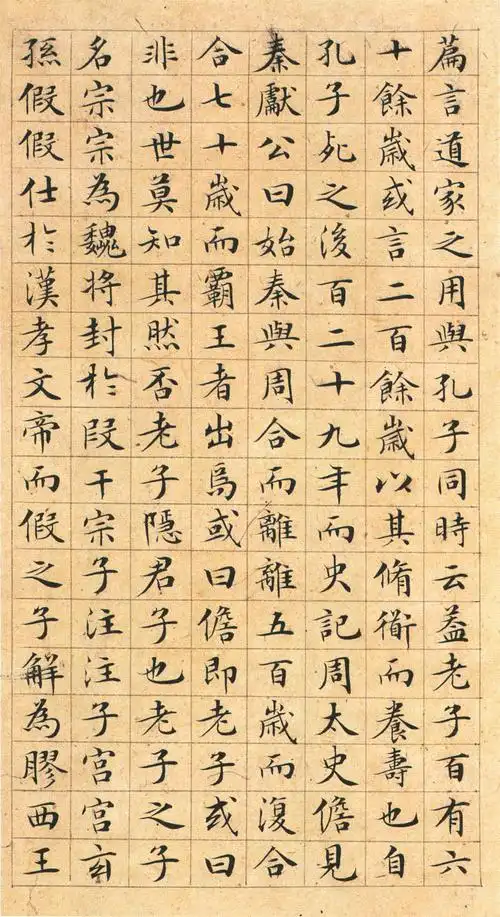 篇言道家之用與孔子同時云葢老子百有六
十餘歲或言二百餘歲以其脩衜而養壽也自
孔子死之後百二十九年而史記周太史儋見
秦獻公曰始秦與周合而離離五百歲而復合
合七十歲而霸王者出焉或曰儋即老子或曰
非也世莫知其然否老子隱君子也老子之子
名宗宗為魏將封於段干宗子注注子宮宮玄
孫假假仕於漢孝文帝而假之子解為膠西王